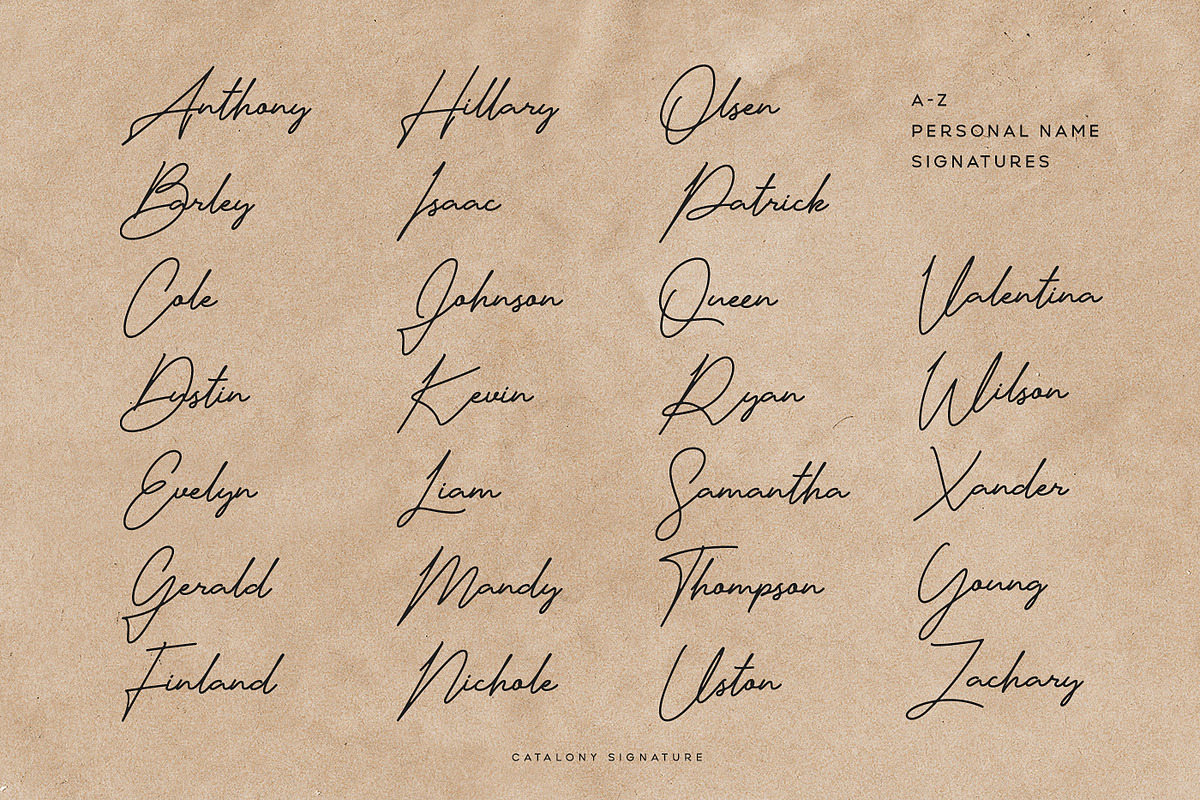 Anthony
Barley
Cole
Dustin
Evelyn
Gerald
Finland
Hillary
Isaac
Johnson
Kevin
Liam
Mandy
Nichole
Olsen
Patrick
Queen
Ryan
Samantha
Thompson
Uston
A-Z
PERSONAL NAME
SIGNATURES
Valentina
Wilson
Xander
Young
Zachary
CATALONY SIGNATURE